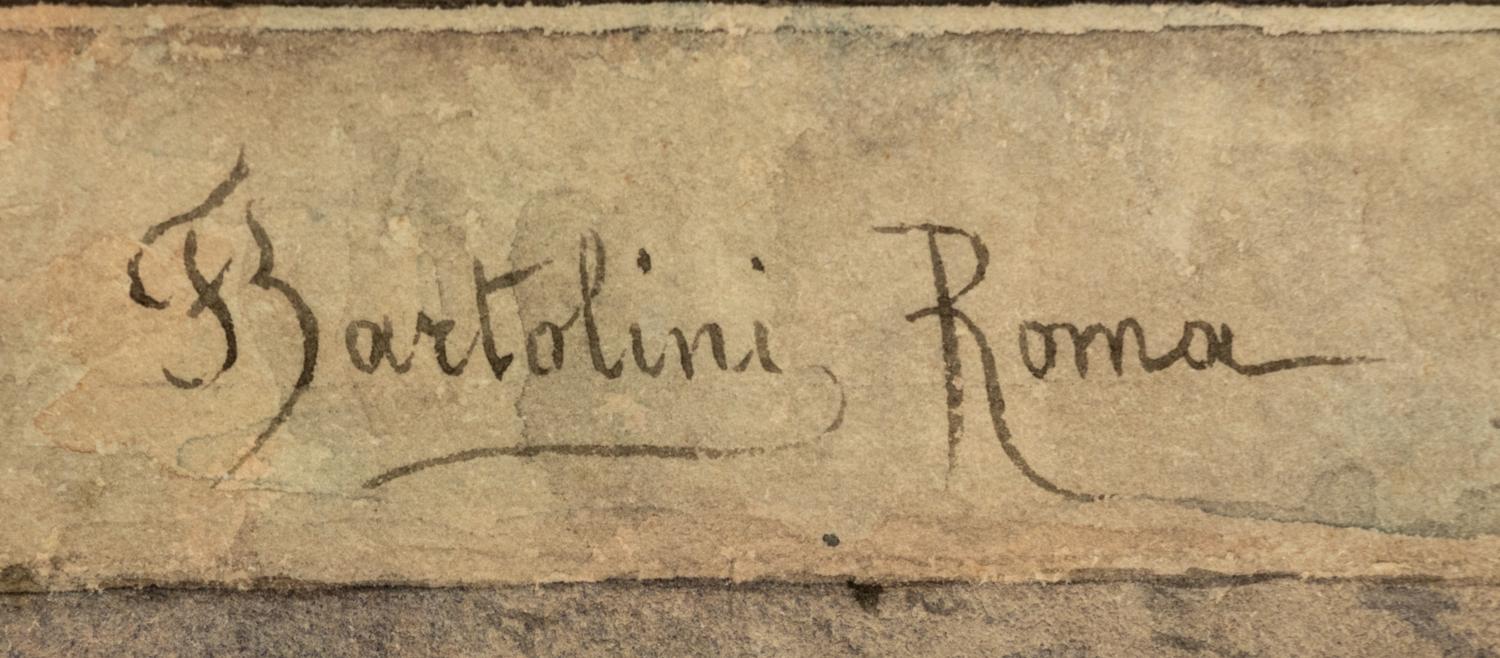 FBartolini Roma